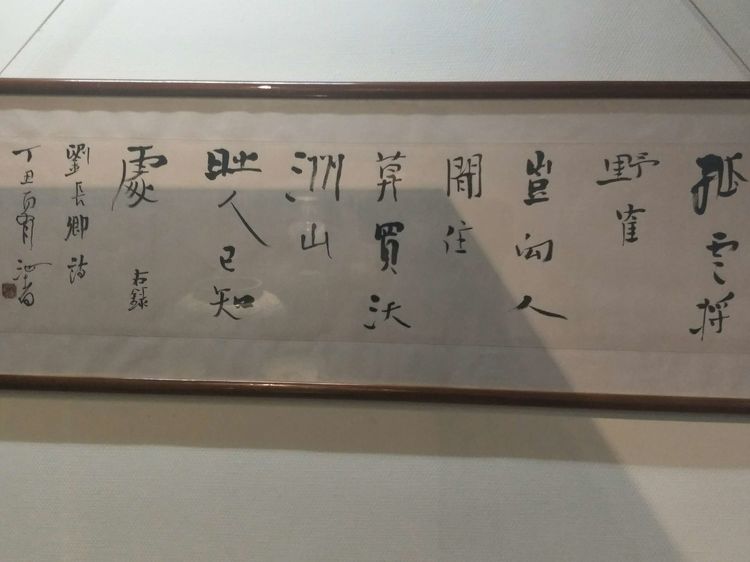 孤雲将
野隺
豈向人
間住
莫買沃
洲山
時人已知
處 右錄
劉長卿詩
丁丑